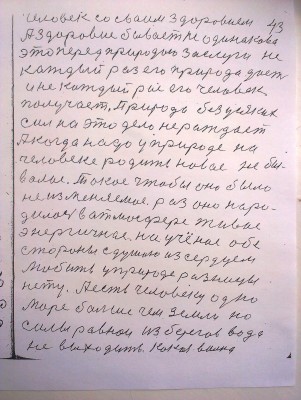 Человек со своим здоровием 43
А здоровие бывает не одинакова
это перед природою заслуги не
каждый раз его природа дает
и не каждый раз его человек
получает. Природа без у всяких
сил на это дело не раждает
А когда надо у природе на
человеке родить новое не бы-
валое. Такое чтобы оно было
не изменяемое раз оно наро-
дилось в атмосфере живое
энергичное. на учёное обе
стороны с душою и сердцем
любить у природе разницы
нету. А есть человеку одно
море больше чем земли но
силы равной из берегов вода
не выходить. Какая волна